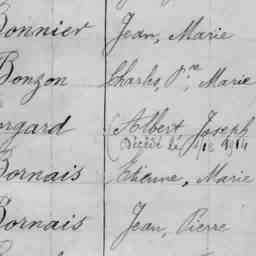 Bonnier Jean, Marie
Bonzon Charles, Pre, Marie
orgard Albert, Joseph
Décédé le 1914
Bornais Etienne, Marie
Bornais Jean, Pierre